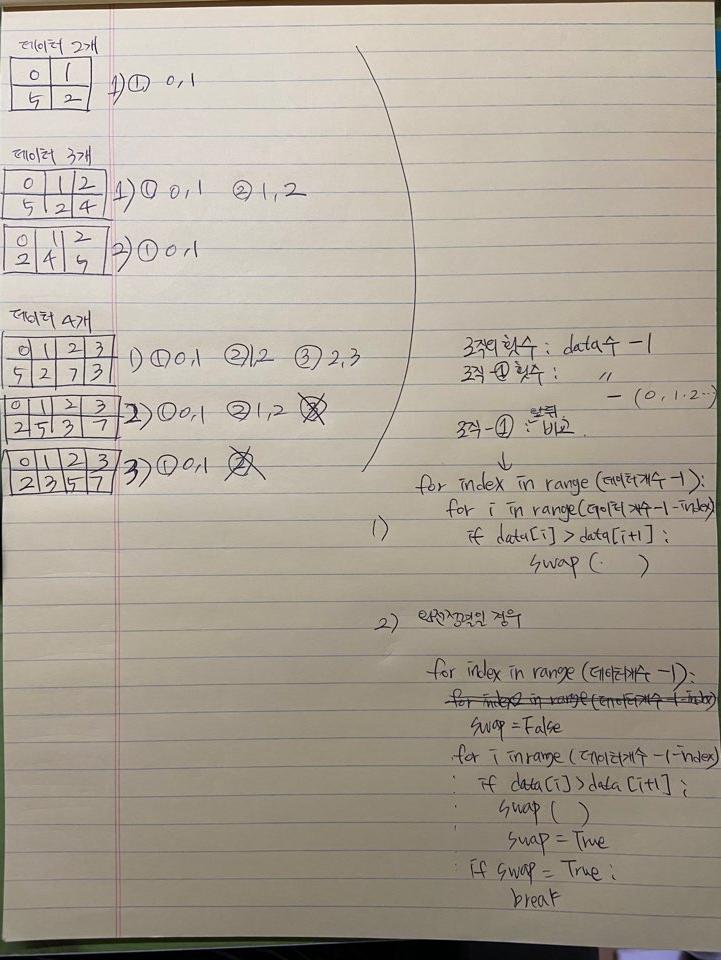 데이터 2개
0 1
5 2
1) ① 0,1
데이터 3개
0 1 2
5 2 4
1) ① 0,1 ② 1,2
0 1 2
2 4 5
2) ① 0,1
데이터 4개
0 1 2 3
5 2 7 3
1) ① 0,1 ② 1,2 ③ 2,3
0 1 2 3
2 5 3 7
2) ① 0,1 ② 1,2 ③
0 1 2 3
2 3 5 7
3) ① 0,1 ②
로직의 횟수 : data수 -1
로직-① 횟수 : 〃
- (0, 1. 2 ...)
로직-① : 앞뒤 비교
↓
1)
for index in range (데이터개수 -1):
for i in range(데이터개수-1-index)
if data[i] > data[i+1] :
swap ( )
2) 완전정렬일 경우
for index in range (데이터개수 -1):
for index2 in range(데이터개수-1-index)
swap = False
for i in range (데이터개수 -1-index)
if data[i] > data [i+1] :
swap ( )
swap = True
if swap = True :
break